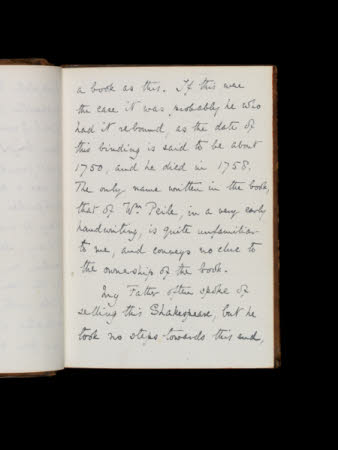 a book as this. If this were
the case it was probably he who
had it rebound, as the date of
this binding is said to be about
1750, and he died in 1758.
The only name written in the book,
that of Wm Peile, in a very early
handwriting, is quite unfamiliar
to me, and conveys no clue to
the ownership of the book.
My Father often spoke of
selling this Shakespeare, but he
took no steps towards this end,